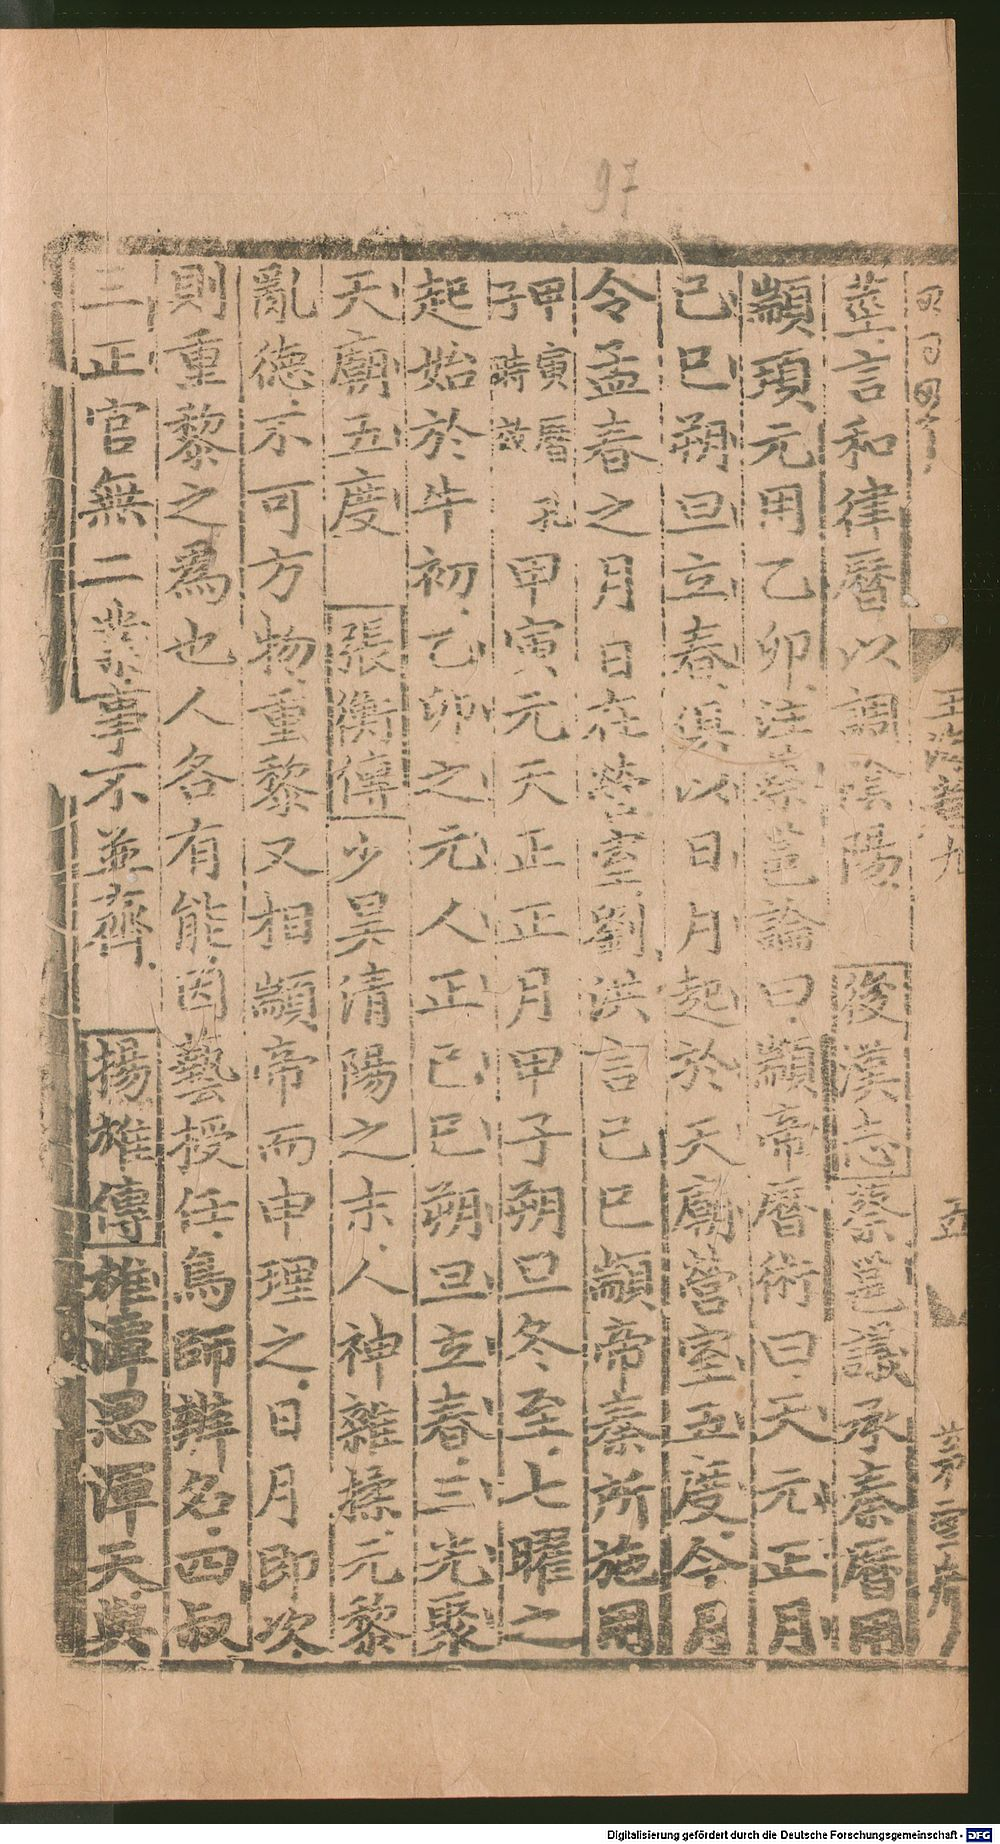 97
莖言和律曆以調陰陽 後漢志蔡邕議承秦曆用
顓頊元用乙卯注蔡邕論曰顓帝曆術曰天元正月
己巳朔旦立春俱以日月起於天廟營室五度今月
令孟春之月日在營室劉洪言己巳顓帝秦所施用
甲寅曆孔
子時效
甲寅元天正正月甲子朔旦冬至七曜之
起始於牛初乙卯之元人正己巳朔旦立春三光聚
天廟五度 張衡傳少昊清陽之末人神雜揉元黎
亂德不可方物重黎又相顓帝而申理之日月即次
則重黎之為也人各有能因藝授任鳥師辨名四叔
三正官無二業事不並齊 揚雄傳雄潭思渾天與
Digitalisierung gefördert durch die Deutsche Forschungsgemeinschaft - DFG